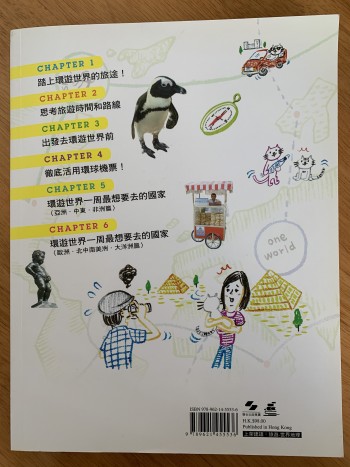 CHAPTER 1
踏上環遊世界的旅途！
CHAPTER 2
思考旅遊時間和路線
CHAPTER 3
出發去環遊世界前
CHAPTER 4
徹底活用環球機票！
CHAPTER 5
環遊世界一周最想要去的國家
（亞洲・中東・非洲篇）
CHAPTER 6
環遊世界一周最想要去的國家
（歐洲・北中南美洲・大洋洲篇）
one
world
Published in Hong Kong